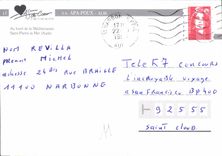 S.A. APA-POUX
Au bord de la Méditerranée
Saint-Pierre la Mer (Aude)
NOM REVILLA
prénom Michel
adresse 24 bis RUE BRAILLE
11100 NARBONNE
TELE K7 CONCOURS
incroyable voyage
à San Francisco BP 400
92555
Saint Cloud